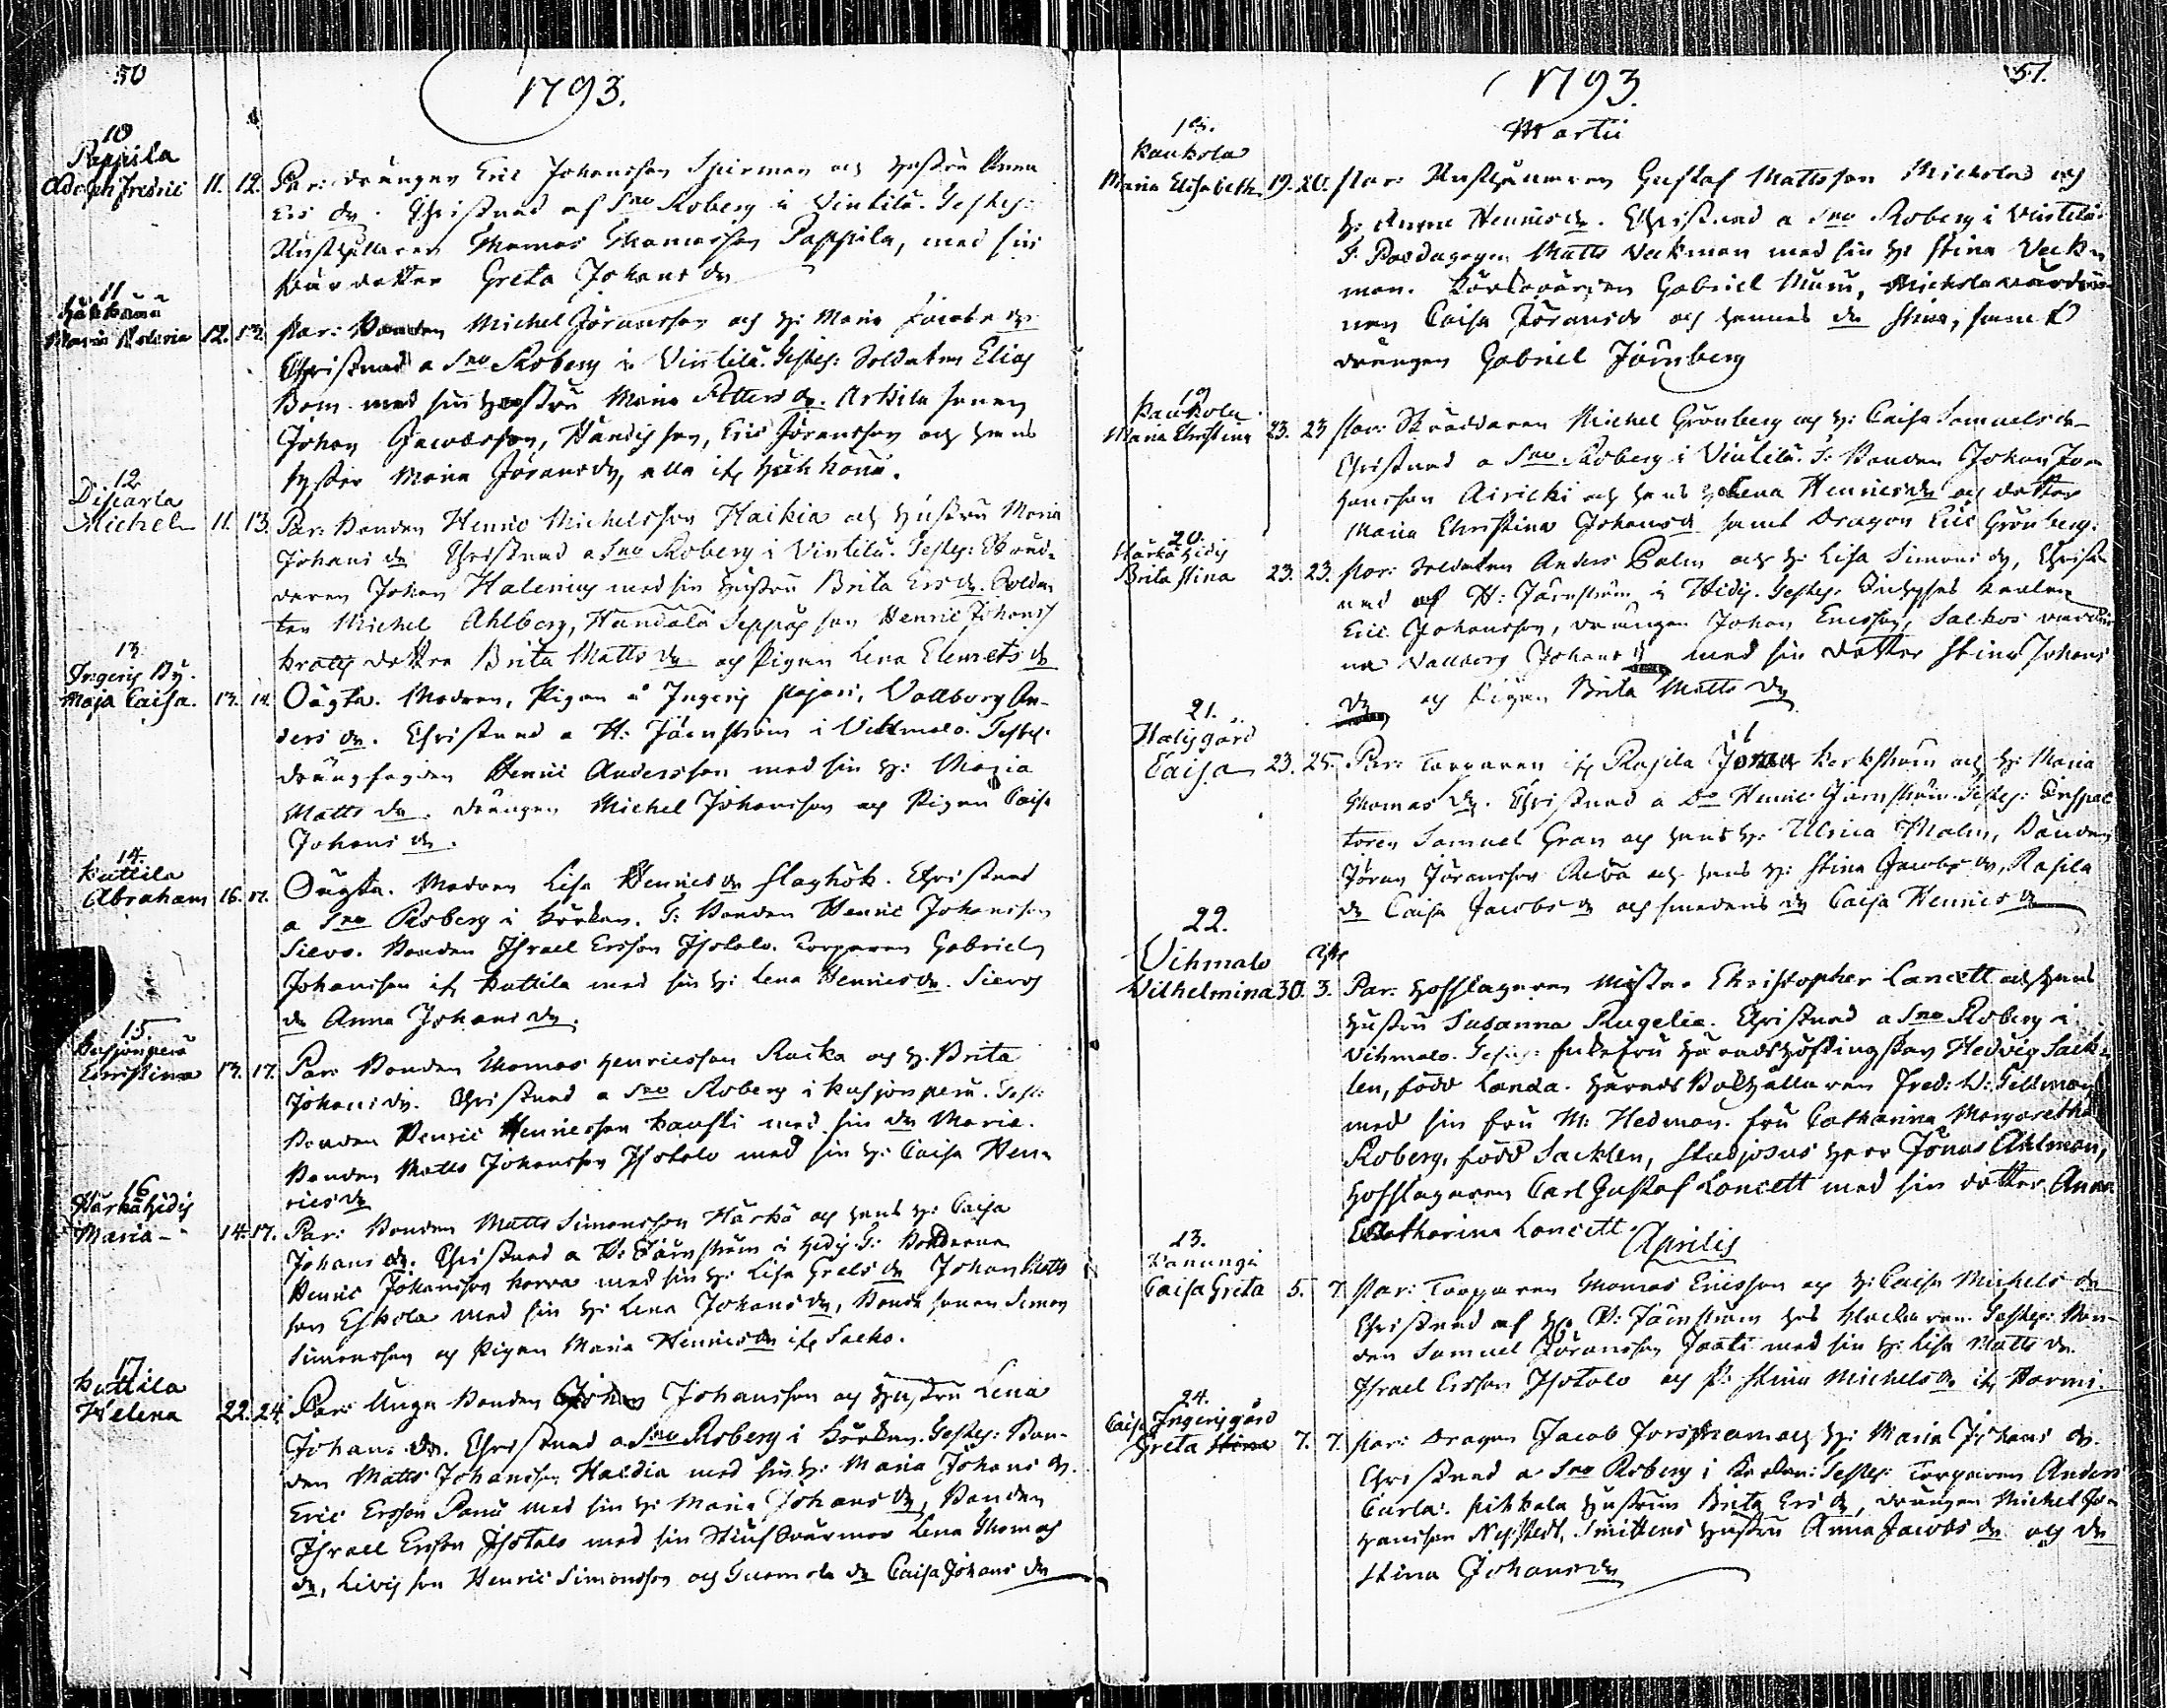 50
1793.
10
Pappila
Adolph Fredric 11. 12. Par: drängen Eric Johansson Spirman och hustru Anna
Ers dr. Christnad af Sno Roberg i Vintilä. Testes:
Rusthållaren Thomas Thomasson Pappila, med sin
Svärdotter Greta Johans dr
11
Maria 12. 13. Par: Bonden Michel Jöransson och h: Maria Jacobs dr
Christnad a Sno Roberg i Vintilä. Testes: Soldaten Elias
Bom med sin hustru Maria Petters dr. Arkila sonen
Johan Jacobsson, Eric Jöransson och hans
syster Maria Jöransdr, alla ifr
12
Disarla
Michel 11. 13. Par: Bonden Henric Michelsson Haikia och hustru Maria
Johans dr Christnad a Sno Roberg i Vintilä. Testes:
Johan Halenius med sin hustru Brita Ersdr. Solda-
ten Michel Ahlberg, Handala Seppäs son Henric Johans
dotter Brita Matts dr och Pigan Lena Clemets dr
13
Ingeris By.
Maja Caisa. 13. 14. Oägta. Modren, Pigan å Ingeris Pajari, Vallborg An-
ders dr. Christnad a H: Järnström i Vihmalo. Testes:
drängfogden Henric Andersson med sin h: Maria
Matts dr. drängen Michel Johansson och Pigan Caisa
Johans dr.
14.
Kuttila
Abraham 16. 17. Oägta. Modren Lisa Henrics dr Slaghök. Christnad
a Sno Roberg i Körkan. T: Bonden Henric Johansson
Sievo. Bonden Israel Ersson Isotalo. Torparen Gabriel
Johansson ifr Kuttila med sin h: Lena Henricsdr. Sievos
dr Anna Johans dr.
15
Christina 13. 17. Par: Bonden Thomas Henricsson Raika och h. Brita
Johansdr. Christnad a Sno Roberg i Test:
Bonden Henric Henricsson med sin dr Maria.
Bonden Matts Johansson Isotalo med sin h: Caisa Hen-
rics dr
16
Härkähidis
Maria - 14. 17. Par: Bonden Matts Simonsson Härkä och hans h: Caisa
Johans dr. Christnad a H: Järnström i Hidis T: Bönderne
Henric Johansson Korva med sin h: Lisa Grels dr Johan Matts
son Eskola med sin h: Lena Johansdr, Bonde sonen Simon
Simonsson och Pigan Maria Henricsdr ifr Salko.
17
Kuttila
Helena 22. 24. Par: Unga Bonden Johan Johansson och hustru Lena
Johans dr. Christnad a Sno Roberg i Körkan. Testes: Bon-
den Matts Johansson Haidia med sin h: Maria Johans dr.
Eric Ersson Panu med sin h: Maria Johans dr, Bonden
Israel Ersson Isotalo med sin Stiuf Svärmor Lena Thomas
dr, Livis son Henric Simonsson och dr Caisa Johans dr
1793.
51.
Martii
18.
Kaukola
Maria Elisabeth 19. 20. Par: Rusthållaren Gustaf Mattsson Michola och
h: Anna Henricsdr. Christnad a Sno Roberg i Vintilä
T: Pædagogen Matts Veckman med sin h: Stina Veck-
man. Gabriel Muru, Michola
nan Caisa Jöransdr och hennes dr Stina, samt
drängen Gabriel Järnberg
19
Kaukola
Maria Christina 23. 23 Par: Skräddaren Michel Grönberg och h: Caisa Samuels dr
Christnad a Sno Roberg i Vintilä. T: Bonden Johan Jo-
hansson Airicki och hans h: Lena Henricsdr och dotter
Maria Christina Johansdr samt Dragon Eric Grönberg.
20.
Härkähidis
Brita Stina 23. 23. Par: Soldaten Anders Palm och h: Lisa Simons dr, Christ-
nad af H: Järnström i Hidis. Testes:
Eric Johansson, drängen Johan Ericsson, Salkos
na Vallborg Johans dr med sin dotter Stina Johans
dr och Pigan Brita Matts dr
21.
Halisgård
Caisa 23. 25. Par: Torparen ifr Rasila Jöran Korkström och h: Maria
Thomas dr. Christnad a Do Henric Järnström. Testes: Inspec-
toren Samuel Gran och hans h: Ulrica Malm, Bonden
Jöran Jöransson och hans h: Stina Jacobs dr, Rasila
dr Caisa Jacobs dr och smedens dr Caisa Henrics dr
22.
Vihmalo
Vilhelmina 30. 3. Par: Hofslagaren Mäster Christopher Lancett och hans
hustru Susanna Rugelia. Christnad a Sno Roberg i
Vihmalo. Testes: Enkefru Häradshöfdingskan Hedvig Sack-
len, född Landa. Herr Bokhållaren Fred: W: Tellman
med sin fru M: Hedman. Fru Catharina Margaretha
Roberg, född Sacklen, Studjosus Herr Jonas Ahlman,
Hofslagaren Carl Gustaf Lancett med sin dotter Anna
Catharina Lancett.
Aprilis
23.
Vanungi
Caisa Greta 5. 7. Par: Torparen Thomas Ericsson och h: Caisa Michels dr
Christnad af Hr H: Järnström hos Klockaren. Testes: Bon-
den Samuel Jöransson Jaati med sin h: Lisa Matts dr.
Israel Ersson Isotalo och P: Stina Michelsdr ifr Harmi.
24.
Caisa Ingerisgård
Greta Stina 7. 7. Par: Dragon Jacob Forsman och h: Maria Johans dr.
Christnad a Sno Roberg i Kyrkan: Testes: Torparen Anders
Carla. Pikkala hustrun Brita Ers dr, drängen Michel Jo-
hansson Nystedt, Smittens hustru Anna Jacobs dr och dr
Stina Johans dr